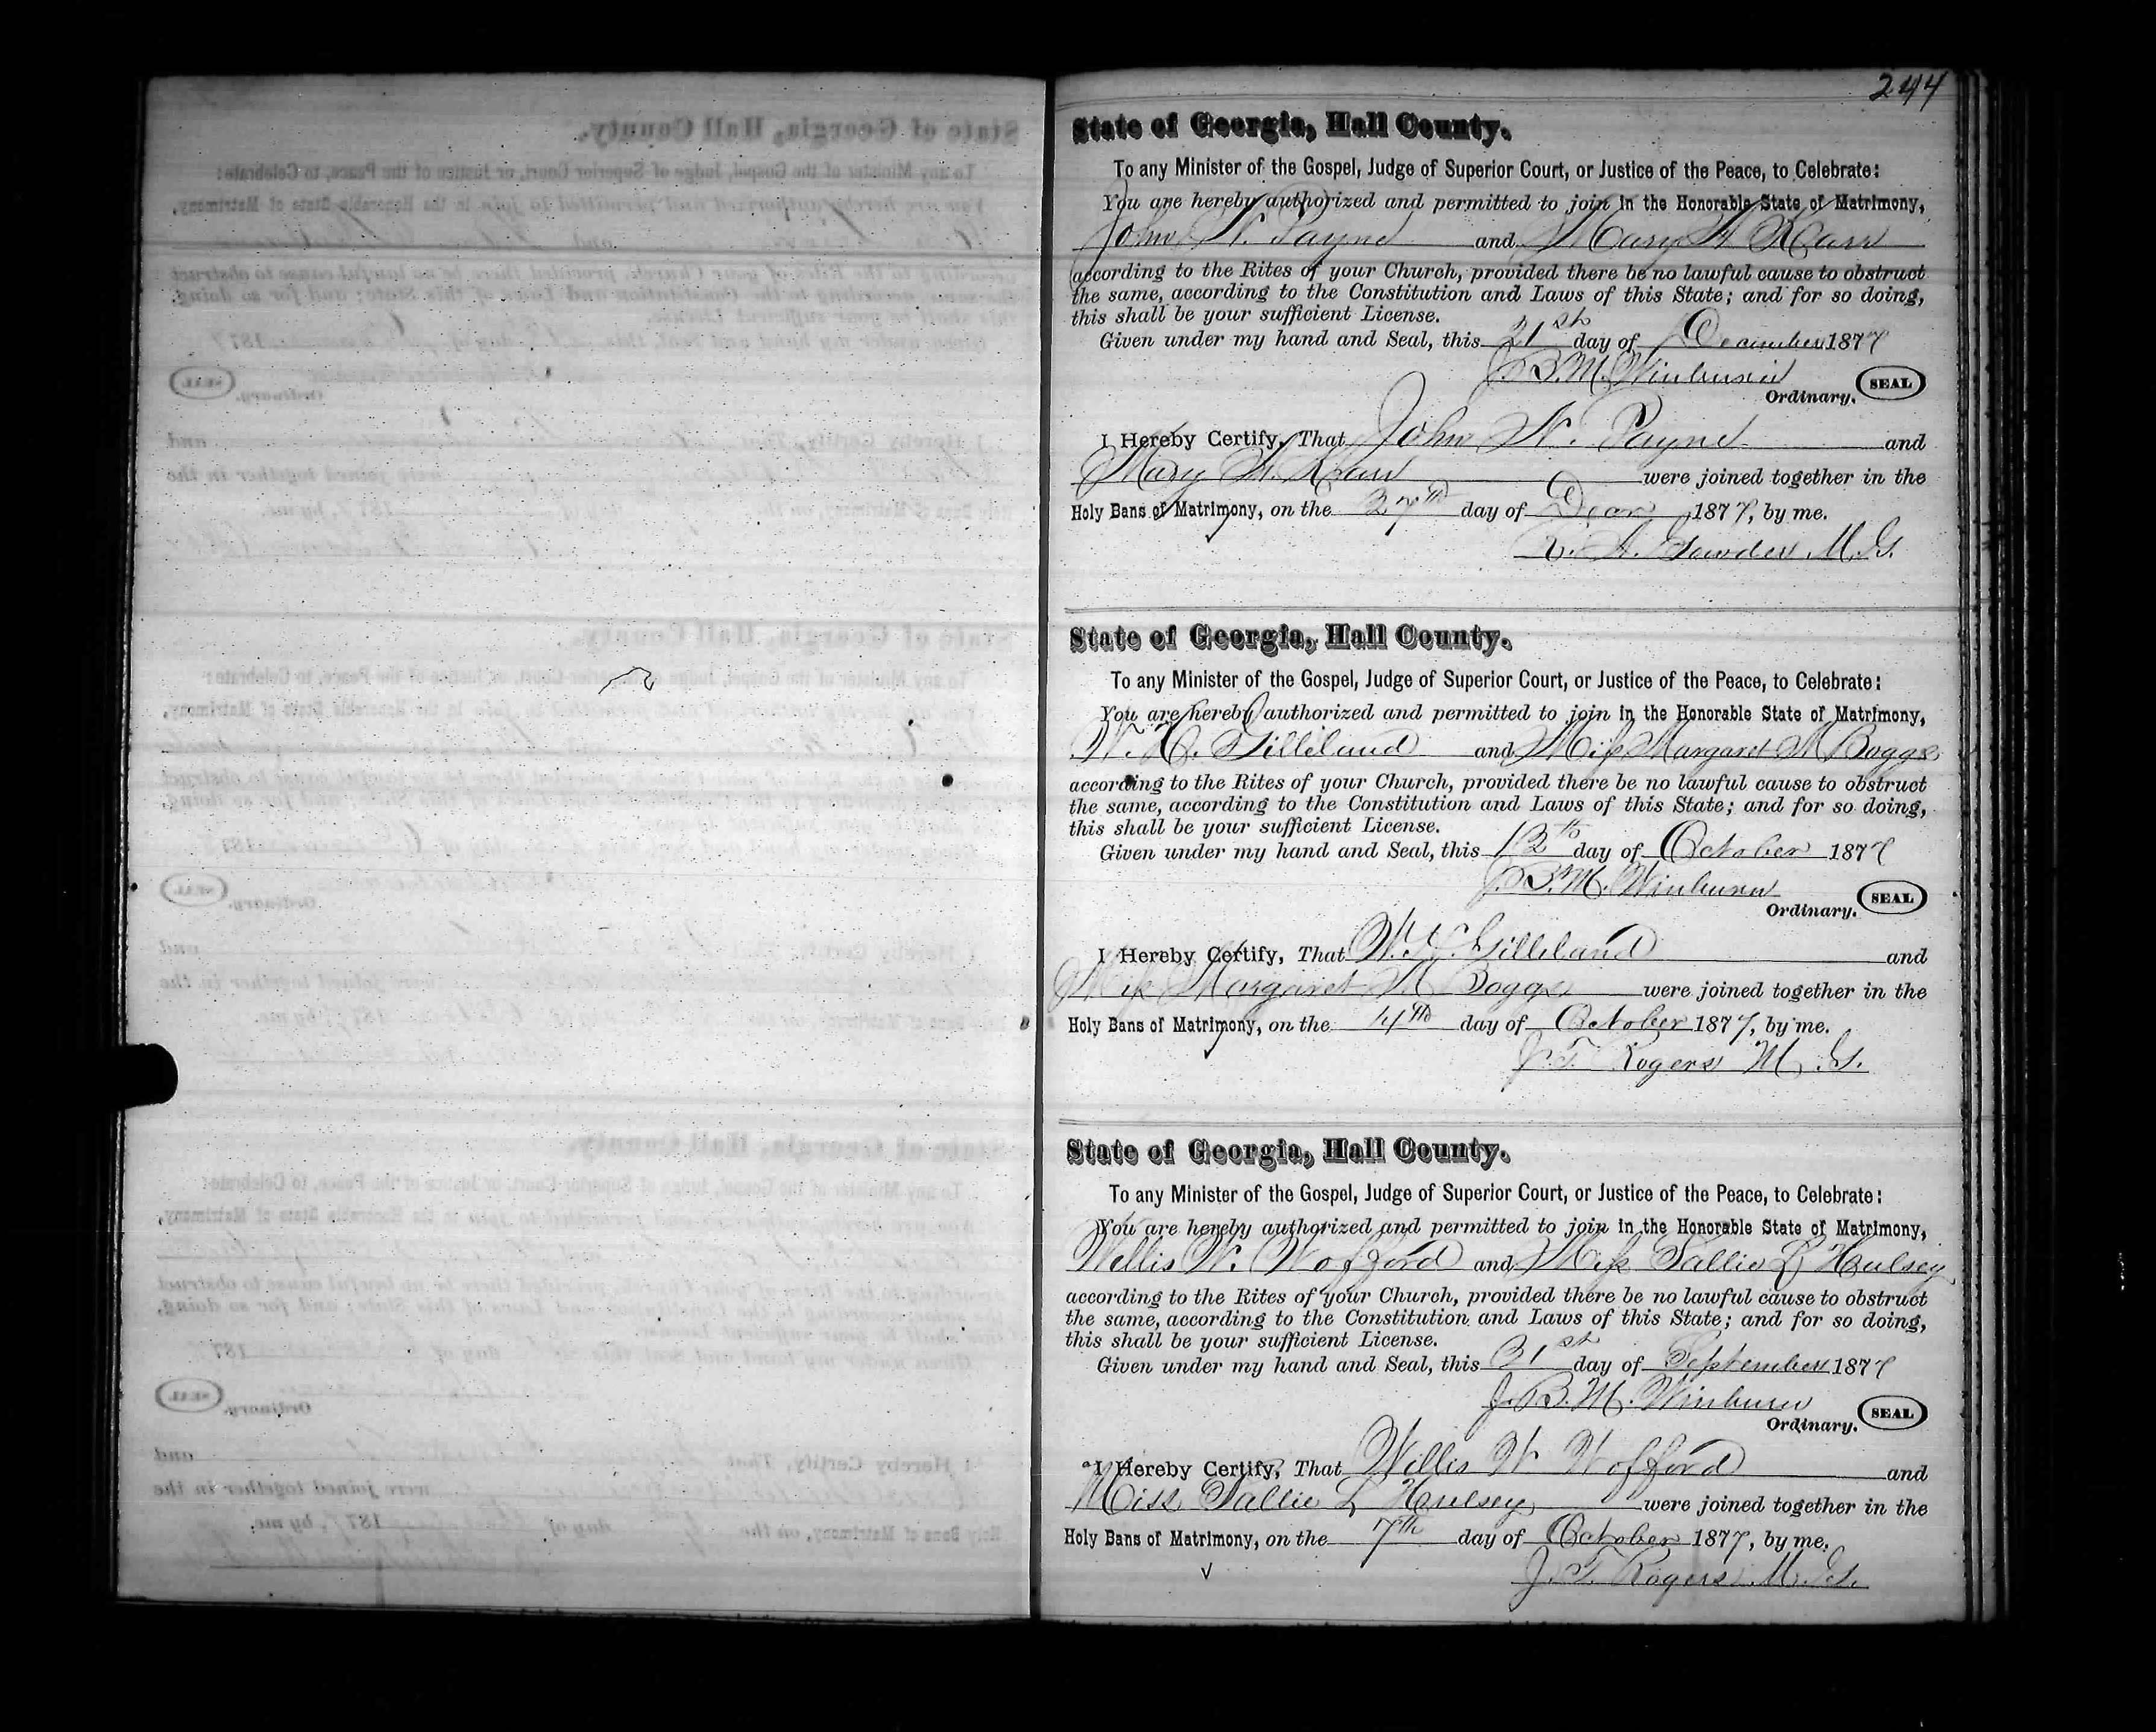 244
State of Georgia, Hall County.
To any Minister of the Gospel, Judge of Superior Court, or Justice of the Peace, to Celebrate:
You are hereby authorized and permitted to join in the Honorable State of Matrimony,
John N. Payne and Mary A
according to the Rites of your Church, provided there be no lawful cause to obstruct
the same, according to the Constitution and Laws of this State; and for so doing,
this shall be your sufficient License.
Given under my hand and Seal, this 21st day of December 1877
J. B. M. Winburn
Ordinary. SEAL
I Hereby Certify, That John N. Payne and
Mary A. were joined together in the
Holy Bans of Matrimony, on the 27th day of 1877, by me.
M. G.
State of Georgia, Hall County.
To any Minister of the Gospel, Judge of Superior Court, or Justice of the Peace, to Celebrate:
You are hereby authorized and permitted to join in the Honorable State of Matrimony,
W. Gilleland and Miss Margaret M Boggs
according to the Rites of your Church, provided there be no lawful cause to obstruct
the same, according to the Constitution and Laws of this State; and for so doing,
this shall be your sufficient License.
Given under my hand and Seal, this day of October 1877
J. B. M. Winburn
Ordinary. SEAL
I Hereby Certify, That W. Gilleland and
Miss Margaret M Boggs were joined together in the
Holy Bans of Matrimony, on the 4th day of October 1877, by me.
J. T. Rogers M. G.
State of Georgia, Hall County.
To any Minister of the Gospel, Judge of Superior Court, or Justice of the Peace, to Celebrate:
You are hereby authorized and permitted to join in the Honorable State of Matrimony,
Willis W. Wofford and Miss Sallie L Hulsey
according to the Rites of your Church, provided there be no lawful cause to obstruct
the same, according to the Constitution and Laws of this State; and for so doing,
this shall be your sufficient License.
Given under my hand and Seal, this 31st day of September 1877
J. B. M. Winburn
Ordinary. SEAL
I Hereby Certify, That Willis W Wofford and
Miss Sallie L Hulsey were joined together in the
Holy Bans of Matrimony, on the 7th day of October 1877, by me.
J. T. Rogers M. G.